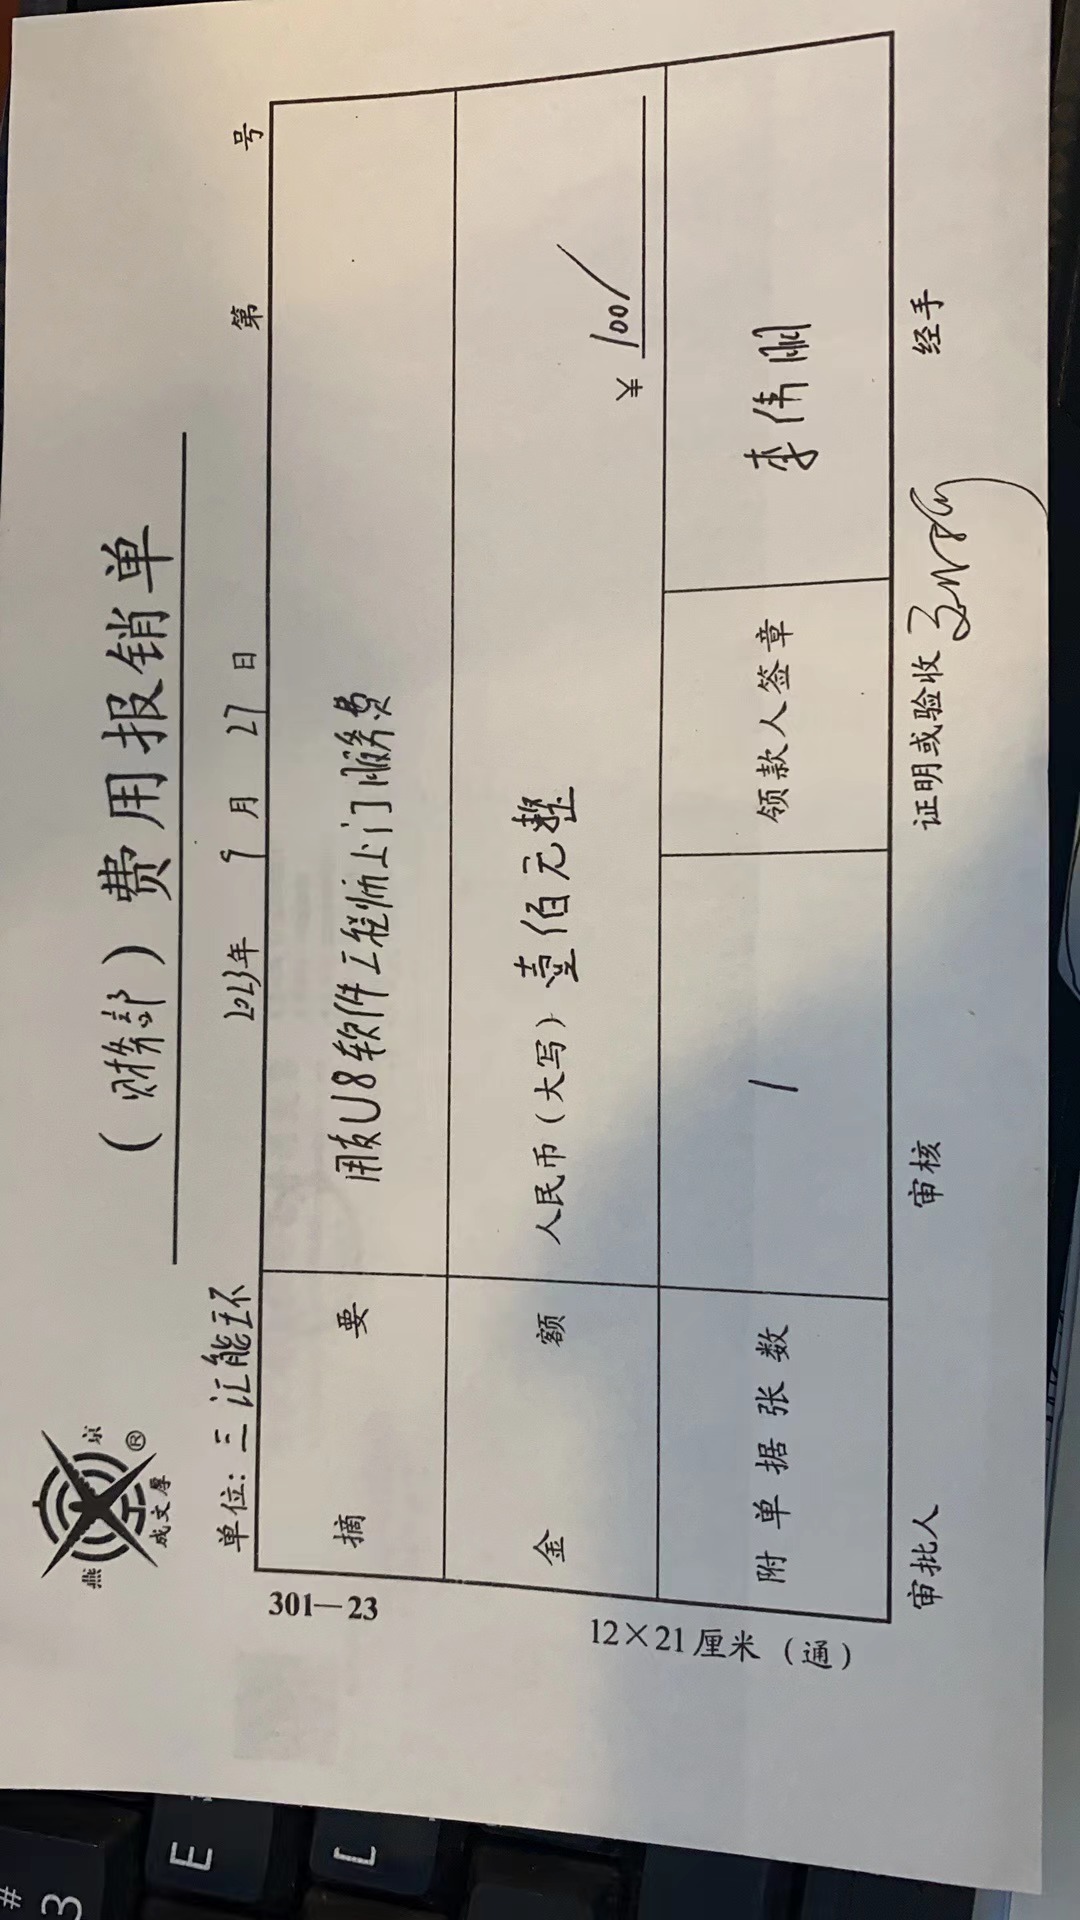 燕京
成文厚®
（财务部）费用报销单
单位：三汇能环 2023年 9月 27日 第 号
301—23
摘要 用友U8软件工程师上门服务费
金额 人民币（大写）壹佰元整 ¥ 100/
附单据张数 1 领款人签章 李伟丽
12×21厘米（通）
审批人 审核 证明或验收 经手
E
#
3